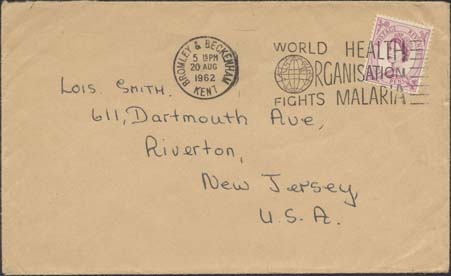 BROMLEY & BECKENHAM
5 15 PM
20 AUG
1962
KENT
WORLD HEALTH
ORGANISATION
FIGHTS MALARIA
POSTAGE REVENUE
Lois. Smith.
611, Dartmouth Ave,
Riverton,
New Jersey,
U.S.A.